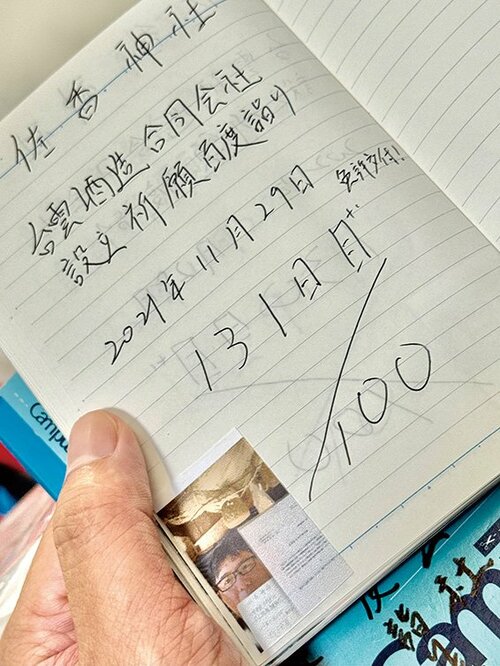 佐香神社
台雲酒造合同会社
設立祈願百度詣り
2021年11月29日 免許交付!
131日目
/100
Campu